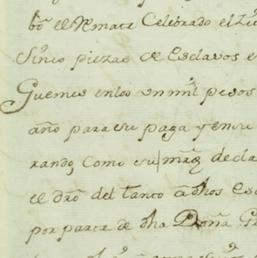 el Remate Celebrado el
Sinco piezas de Esclavos e
Guemes en los un mil pesos
año para su paga y en su
rando, Como su mrd decla
el dro del tanto a dhos Es
por parte de dha Doña G